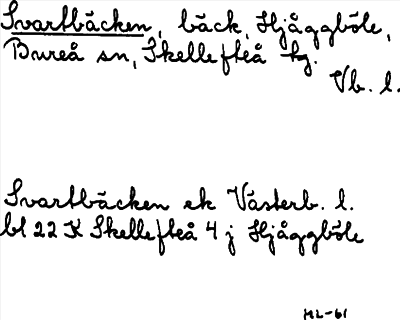 Svartbäcken, bäck, Hjåggböle,
Bureå sn, Skellefteå tg.
Vb. l.
Svartbäcken ek Västerb. l.
bl 22 K Skellefteå 4 j Hjåggböle
ML-61